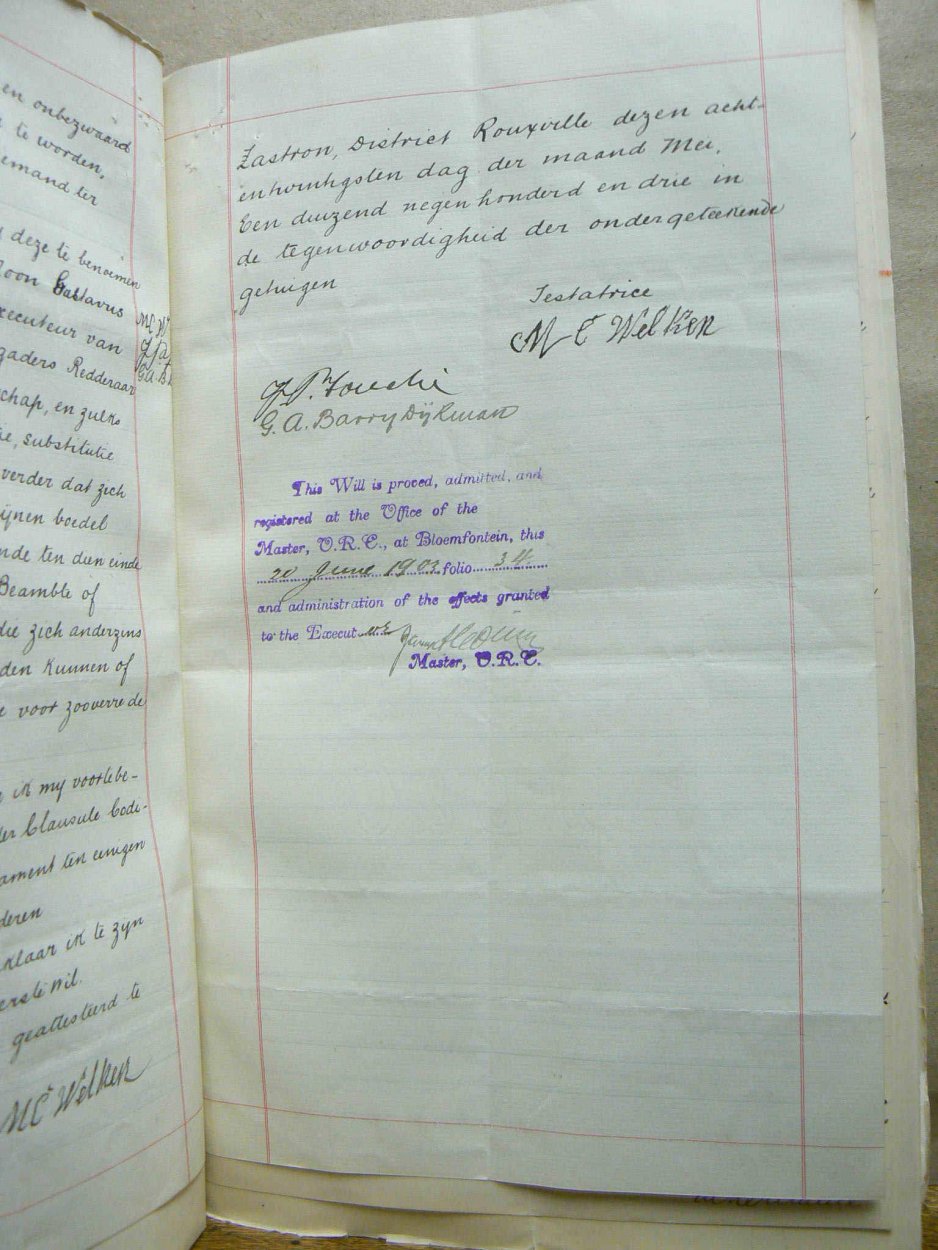 en onbezwaard
te worden,
iemand ter
deze te benoemen
zoon Gustavus
Executeur van
gaders Redderaar
schap, en zulke
tie, substitutie
verder dat zich
mijnen boedel
ende ten dien einde
Beambte of
die zich anderzins
den kunnen of
e voor zooverre de
ik my voorbe-
der Clausule Codi-
ament ten eenigen
deren
klaar ik te zijn
erste wil.
geattesteerd te
M C Welken
M C W
Zastron, District Rouxville dezen acht-
entwintigsten dag der maand Mei,
Een duizend negen honderd en drie in
de tegenwoordigheid der ondergeteekende
getuigen
Testatrice
M C Welken
J. P. Fouché
G. A. Barry Dÿkman
This Will is proved, admitted, and
registered at the Office of the
Master, O.R.C., at Bloemfontein, this
20 June 1903 folio 34
and administration of the effects granted
to the Execut
Master, O.R.C.